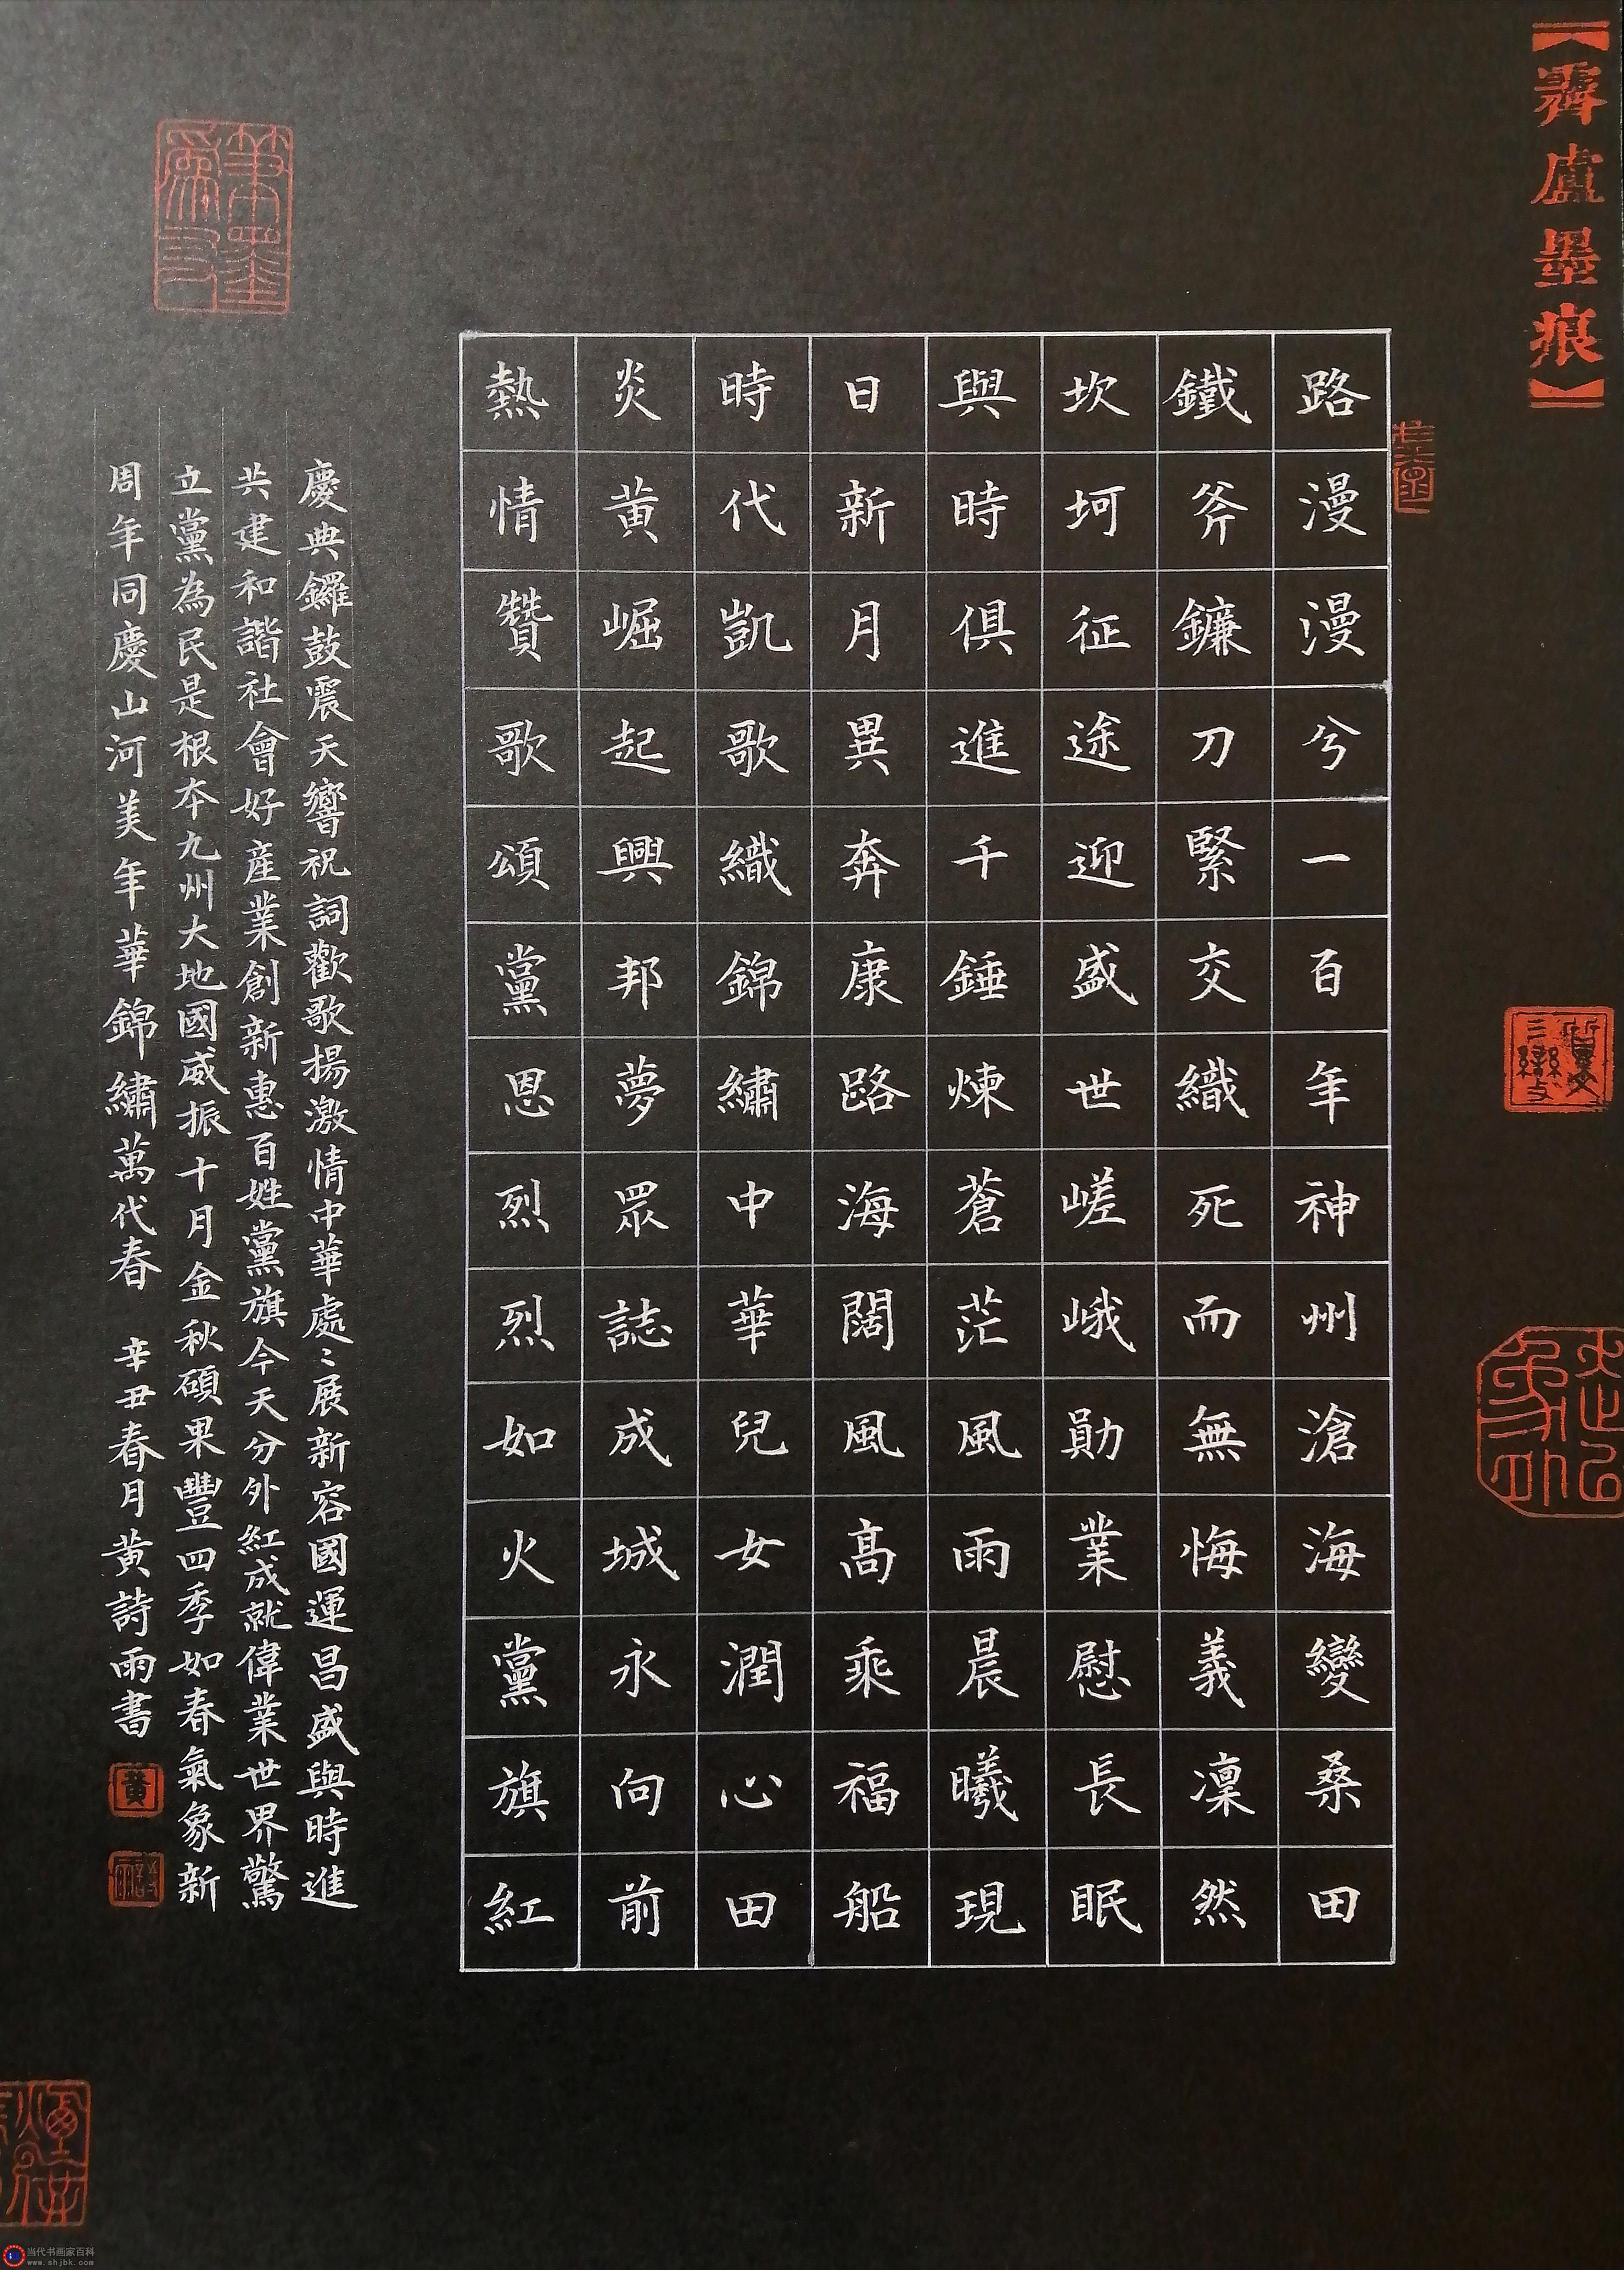 【霽廬墨痕】
路漫漫兮一百年神州滄海變桑田
鐵斧鐮刀緊交織死而無悔義凜然
坎坷征途迎盛世嵯峨勛業慰長眠
與時俱進千錘煉蒼茫風雨晨曦現
日新月異奔康路海闊風高乘福船
時代凱歌織錦繡中華兒女潤心田
炎黃崛起興邦夢眾誌成城永向前
熱情贊歌頌黨恩烈烈如火黨旗紅
慶典鑼鼓震天響祝詞歡歌揚激情中華處〻展新容國運昌盛與時進
共建和諧社會好產業創新惠百姓黨旗今天分外紅成就偉業世界驚
立黨為民是根本九州大地國威振十月金秋碩果豐四季如春氣象新
周年同慶山河美年華錦繡萬代春 辛丑春月黃詩雨書
黃
詩雨
筆墨
当代书画家百科
www.shjbk.com